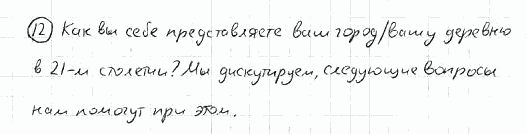 12 Как вы себе представляете ваш город/вашу деревню
в 21-м столетии? Мы дискутируем, следующие вопросы
нам помогут при этом.